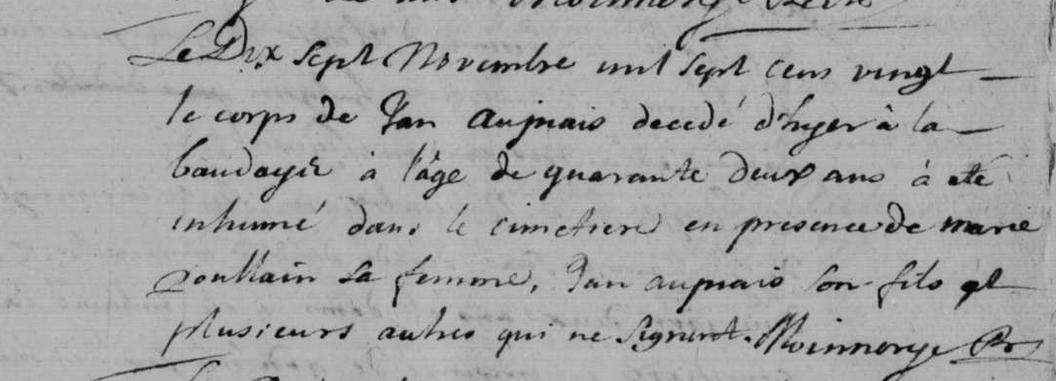 Le Dix sept Novembre mil sept cens vingt
le corps de Jan Aupnais decedé d'hyer à la
baudayie à l'âge de quarante deux ans à été
inhumé dans le cimetiere en presence de marie
poullain sa femme, Jan aupnais son fils et
plusieurs autres qui ne signent.